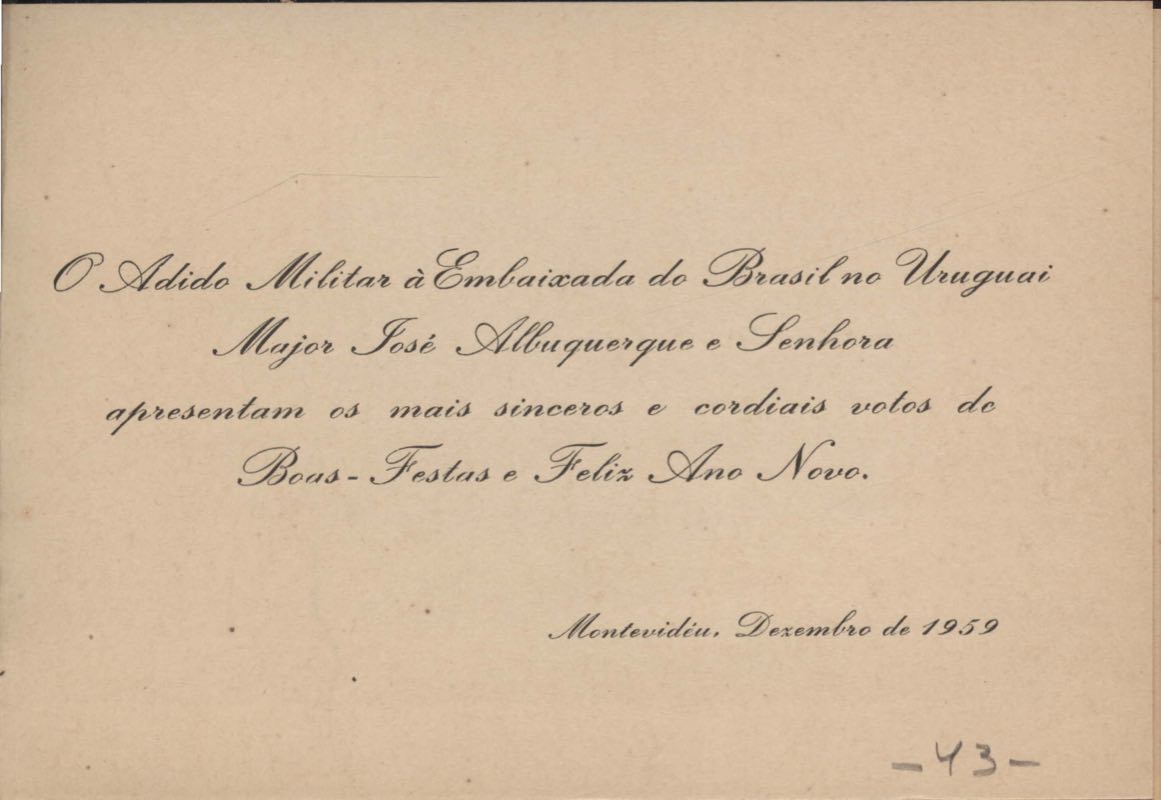 O Adido Militar à Embaixada do Brasil no Uruguai
Major José Albuquerque e Senhora
apresentam os mais sinceros e cordiais votos de
Boas-Festas e Feliz Ano Novo.
Montevidéu, Dezembro de 1959
-43-